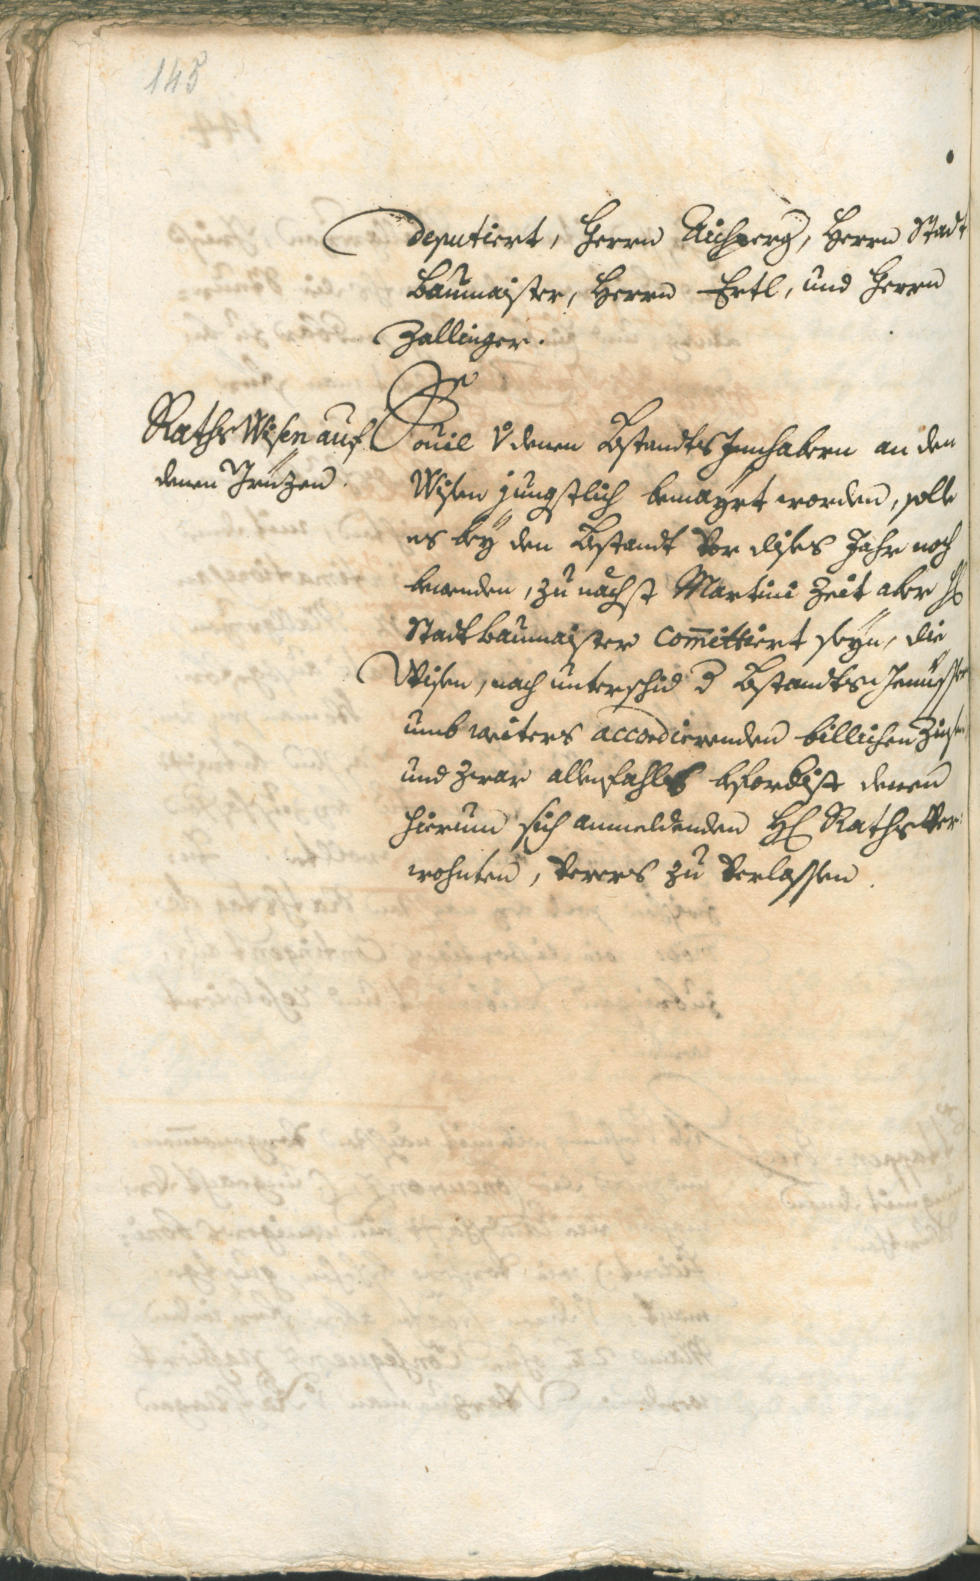 145
deputiert, Herrn Aichperg, Herrn Stadt
Baumaister, Herrn Ertl, und Herrn
Zallinger.
Raths Wisen auf
denen
Souil v denen Bstandts Innhabern an den
Wisen jüngstlich worden, solle
es bey den Bstandt vor dises Jahr noch
bewenden, zu nächst Martini Zeit aber H
Stadtbaumaister committiert seyn, die
Wisen, nach unterschid d Bstandts
umb weiters accordierenden billichen Zinsen
und zwar allenfahls befordist denen
hierum sich anmeldenden HH Raths Ver
wohnten, zu verlassen.